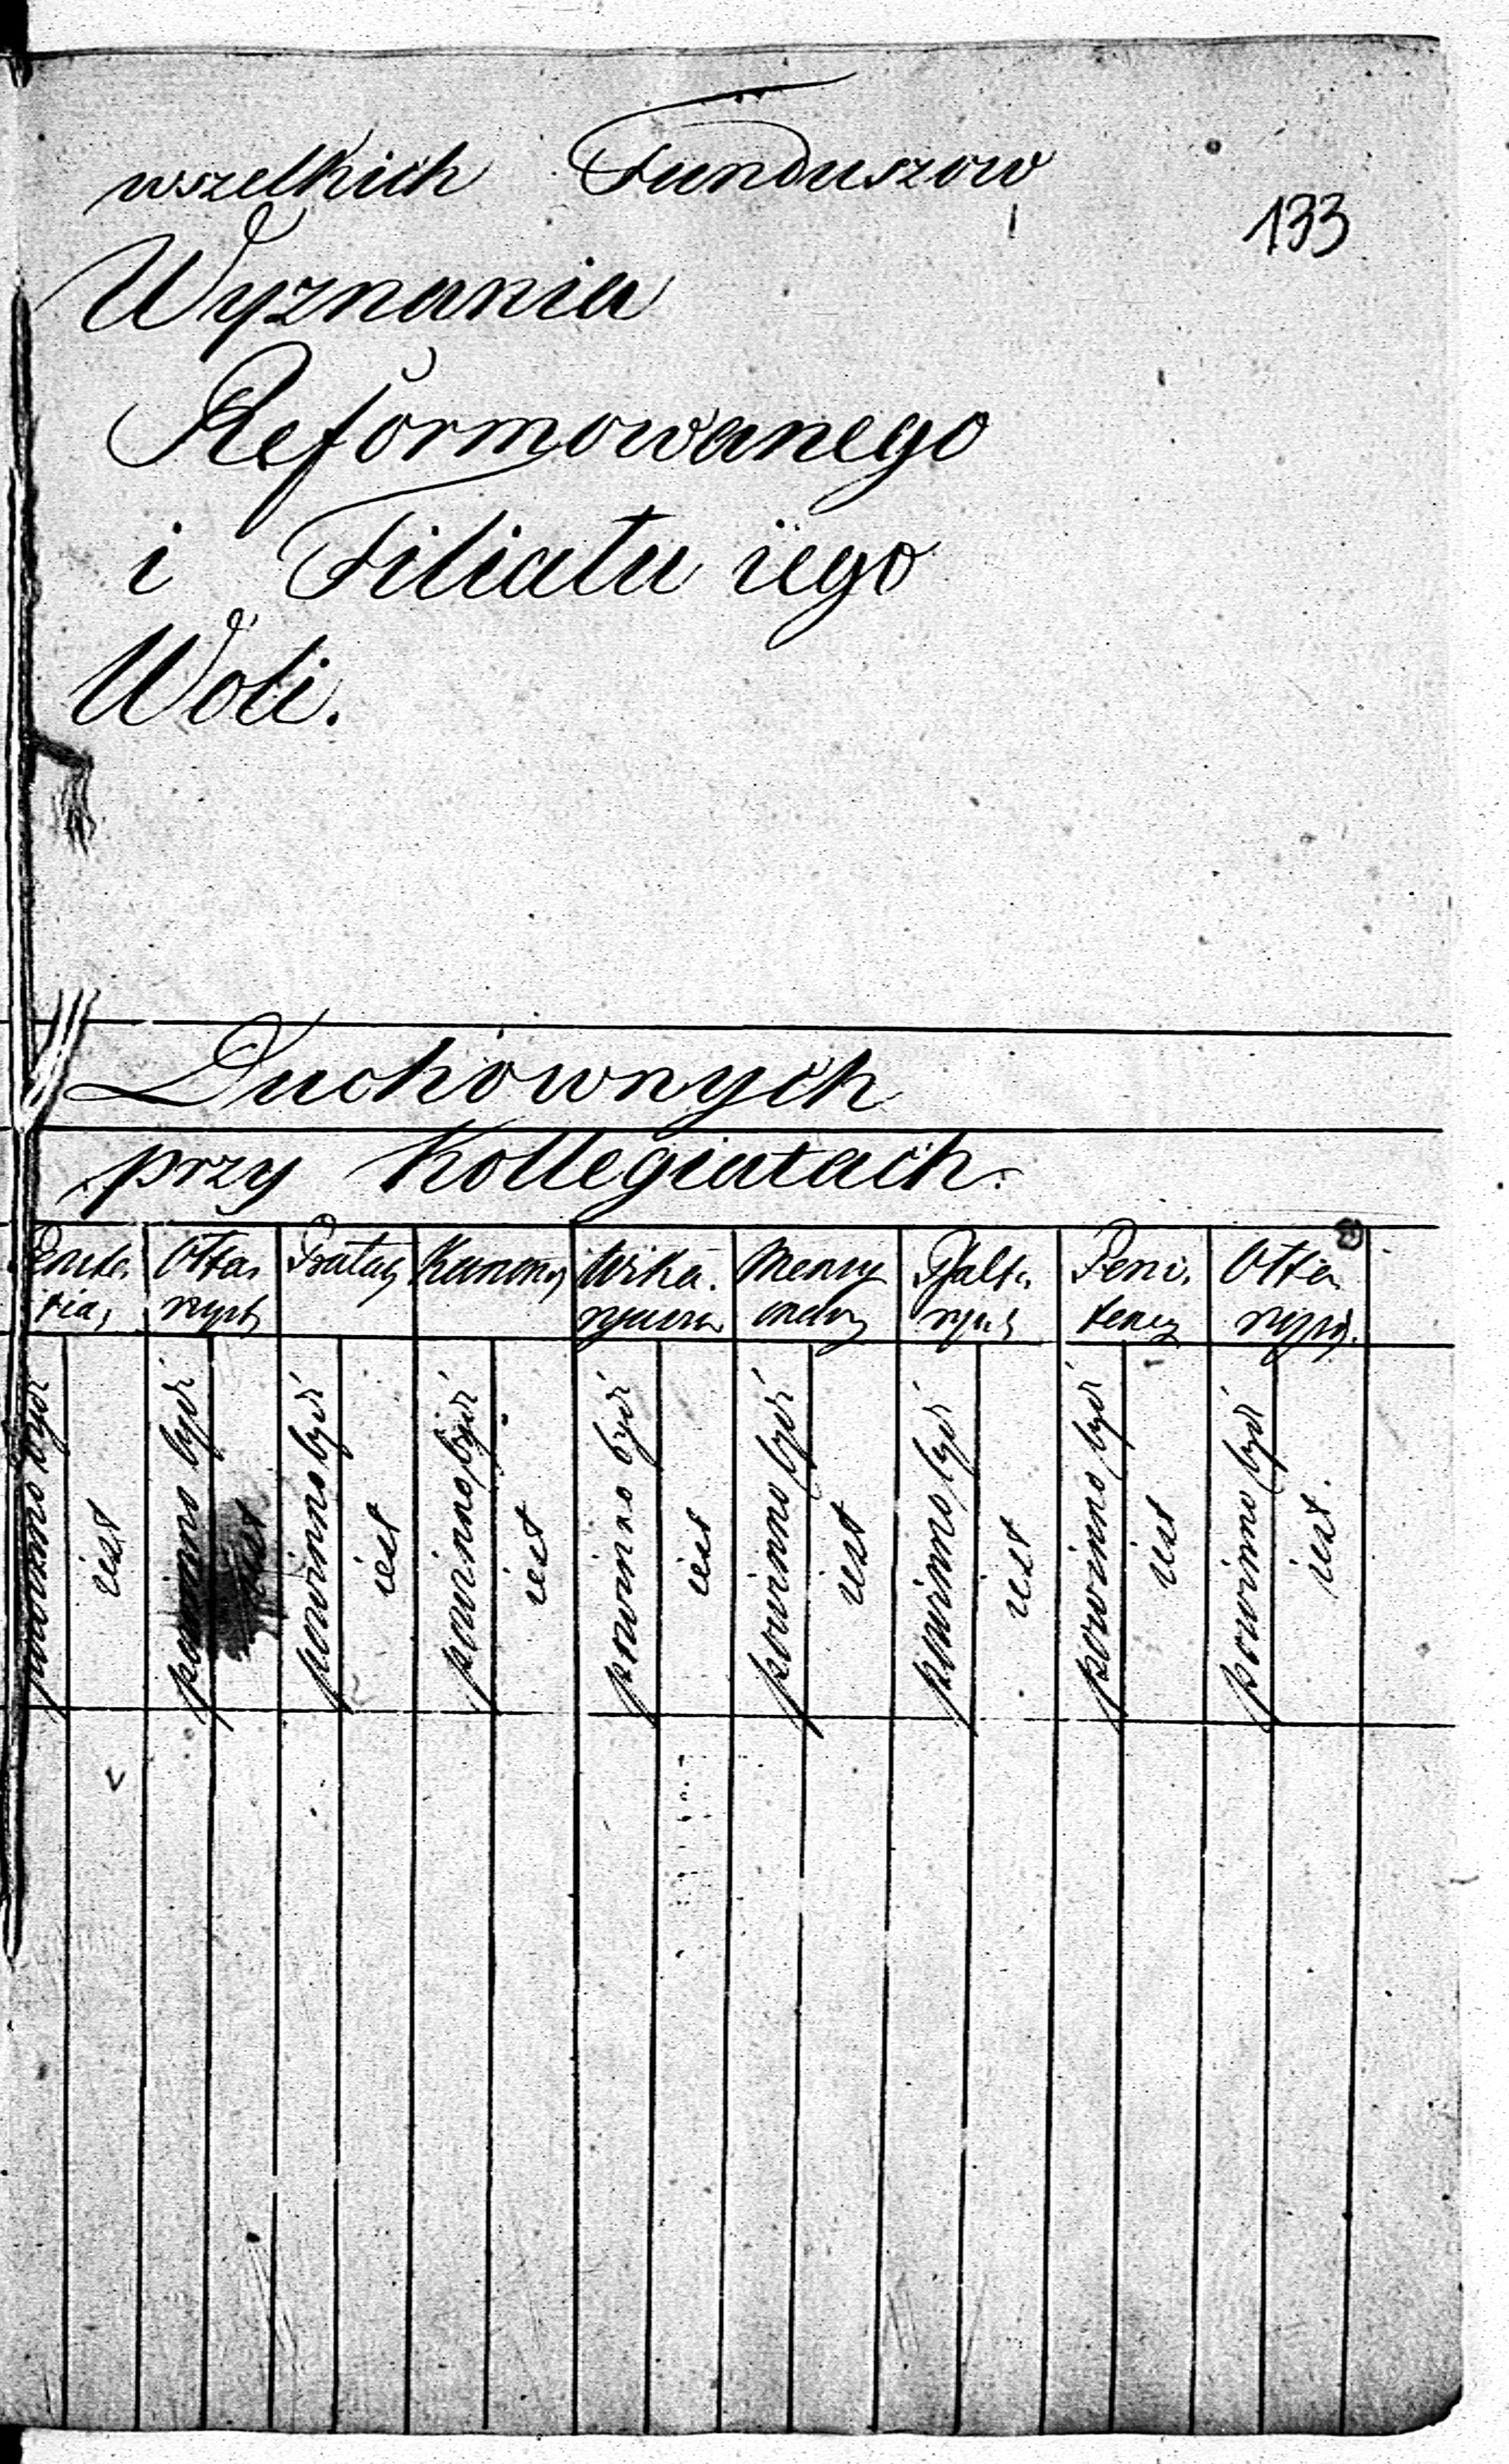 wszelkich Funduszow
133
Wyznania
Reformowanego
i Filiatu iego
Woli.
Duchownych
przy Kollegiatach.
Otta, Kanony Wika. Psalte, Peni, Otta
tency
powinno być
iest
powinno być
iest
powinno być
iest
powinno być
iest
powinno być
iest
powinno być
iest
powinno być
iest
powinno być
iest
powinno być
iest.